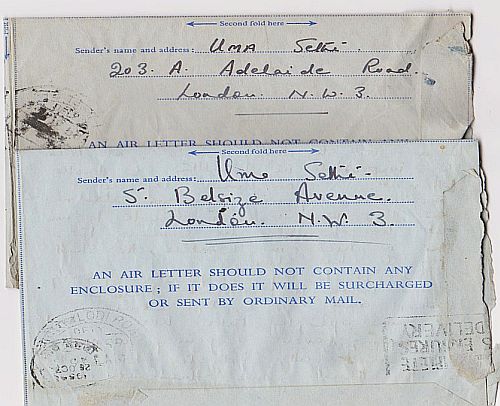 Second fold here
Sender's name and address: Uma Sethi.
203. A. Adelaide Road.
London. N.W. 3.
AN AIR LETTER SHOULD NOT CONTAIN ANY
Second fold here
Sender's name and address: Uma Sethi.
5. Belsize Avenue.
London. N.W 3.
AN AIR LETTER SHOULD NOT CONTAIN ANY
ENCLOSURE ; IF IT DOES IT WILL BE SURCHARGED
OR SENT BY ORDINARY MAIL.
DELIVERY